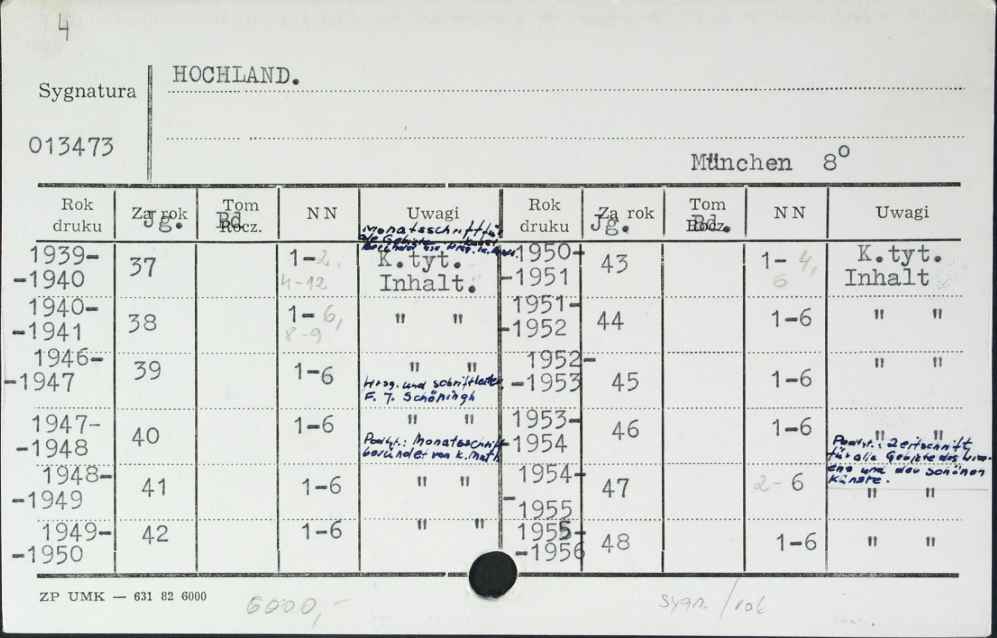 4
HOCHLAND.
Sygnatura
013473
München 8°
Rok druku Za rok Jg. Tom Bd. Rocz. NN Uwagi Rok druku Za rok Jg. Tom Bd. Rocz. NN Uwagi
Monatsschrift für
alle Gebiete
1939-
-1940 37 1-2, 4-12 K.tyt. Inhalt.
1940-
-1941 38 1-6, 8-9 " "
1946-
-1947 39 1-6 " "
Hrsg. und Schriftleiter
F. J. Schöningh
1947-
-1948 40 1-6 " "
Podtyt.: Monatsschrift
begründet von K. Muth
1948-
-1949 41 1-6 " "
1949-
-1950 42 1-6 " "
1950-
-1951 43 1-4, 6 K.tyt. Inhalt
1951-
-1952 44 1-6 " "
1952-
-1953 45 1-6 " "
1953-
-1954 46 1-6 " "
Podtyt.: Zeitschrift
für alle Gebiete des Wiss-
ens und der schönen
Künste.
1954-
-1955 47 2-6 " "
1955-
-1956 48 1-6 " "
ZP UMK — 631 82 6000
6000,-
sygn. / rok